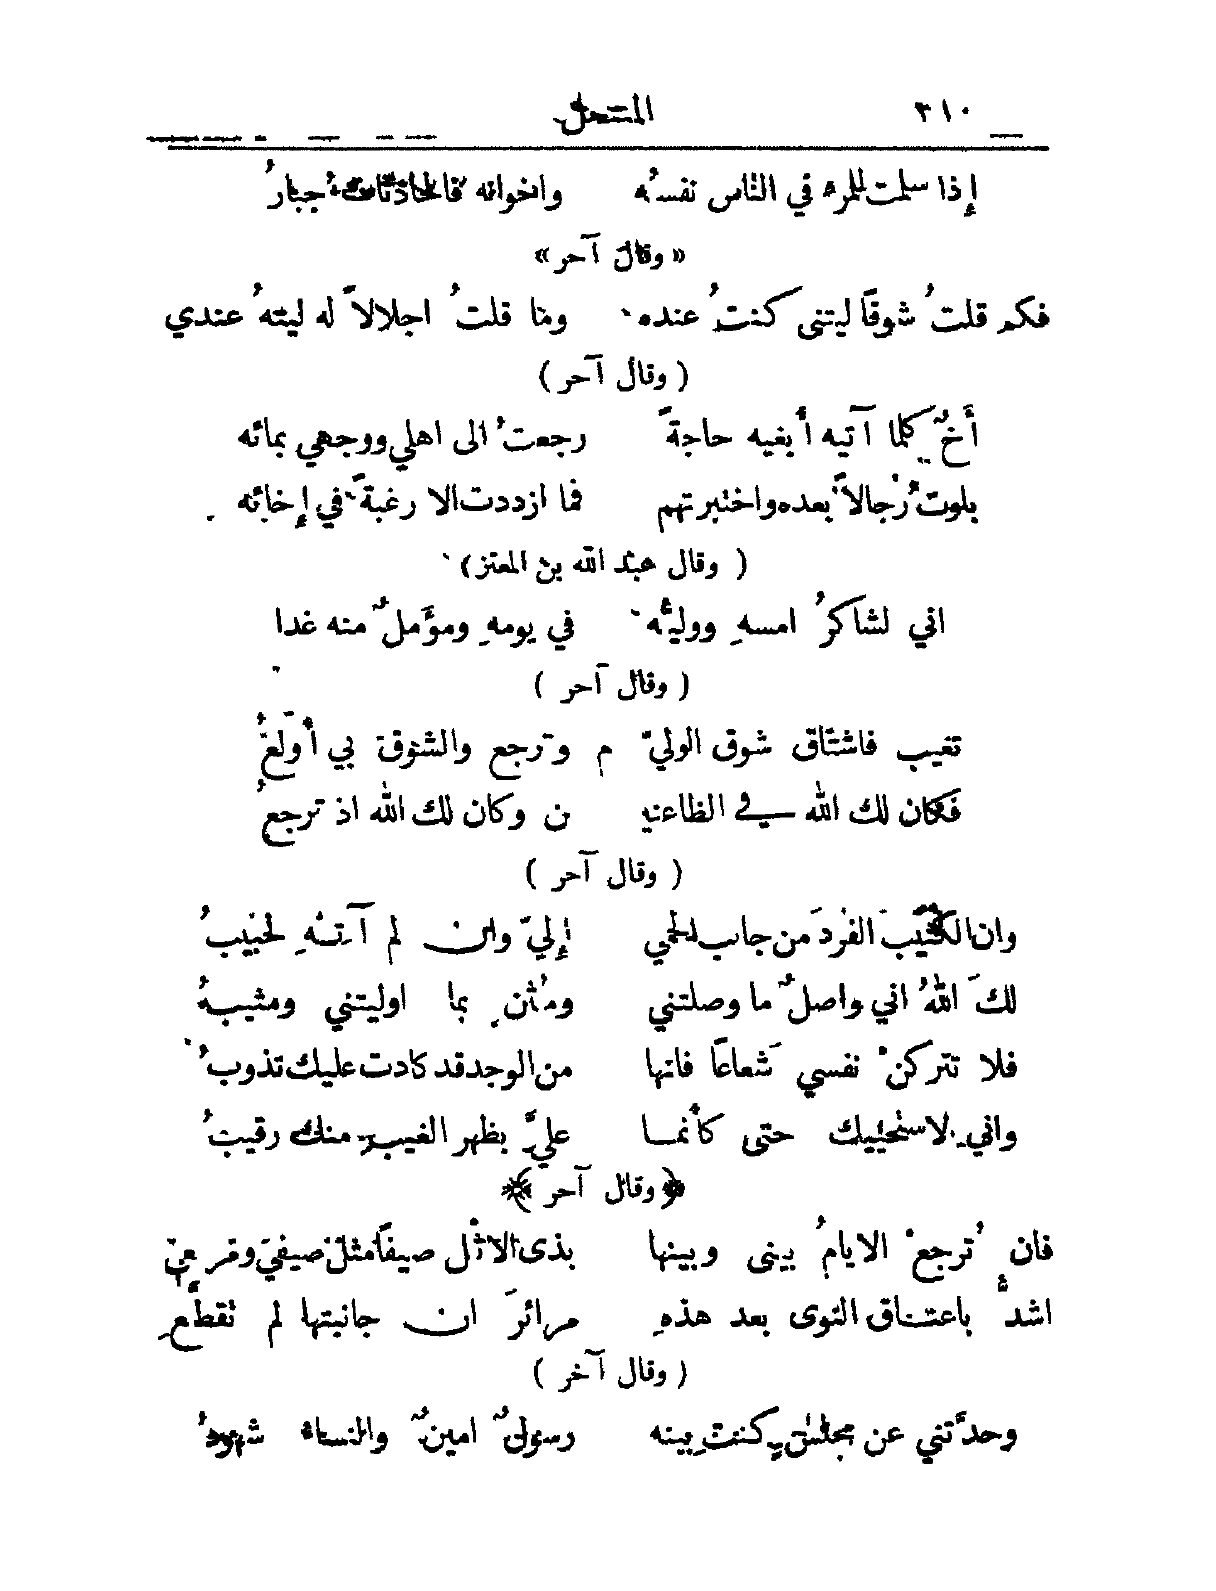 ٢١٠ المنتحل
إذا سلمت للمرء في الناس نفسُه واخوانه فالحادثات جبارُ
« وقال آخر »
فكم قلتُ شوقًا ليتني كنتُ عنده وما قلتُ اجلالاً له ليتهُ عندي
( وقال آخر )
أخٌ كلما آتيه أبغيه حاجةً رجعتُ الى اهلي ووجهي بمائه
بلوتُ رُجالاً بعده واختبرتهم فما ازددت الا رغبةً في إخائه
( وقال عبد الله بن المعتز )
اني لشاكرُ امسهِ ووليُّه في يومهِ ومؤَملٌ منه غدا
( وقال آخر )
تغيب فاشتاق شوق الوليّ م وترجع والشوق بي أولَعُ
فكان لك الله في الظاعنيـ ن وكان لك الله اذ ترجعُ
( وقال آخر )
وان الكثيبَ الفردَ من جانب الحمي إليّ وان لم آتهِ لحبيبُ
لكَ اللهُ اني واصلٌ ما وصلتني ومُثنٍ بما اوليتني ومثيبُ
فلا تتركنْ نفسي شَعاعًا فانها من الوجد قد كادت عليك تذوبُ
واني لاستحييك حتى كأنما عليَّ بظهر الغيبِ منك رقيبُ
﴿ وقال آخر ﴾
فان تُرجعْ الايامُ بينى وبينها بذى الاثل صيفًا مثل صيفي ومربعي
اشدُّ باعتناق النوى بعد هذهِ مرائرَ ان جانبتها لم تقطَّعِ
( وقال آخر )
وحدَّثتني عن مجلسٍ كنتِ بينه رسولٌ امينٌ والنساء شهودُ